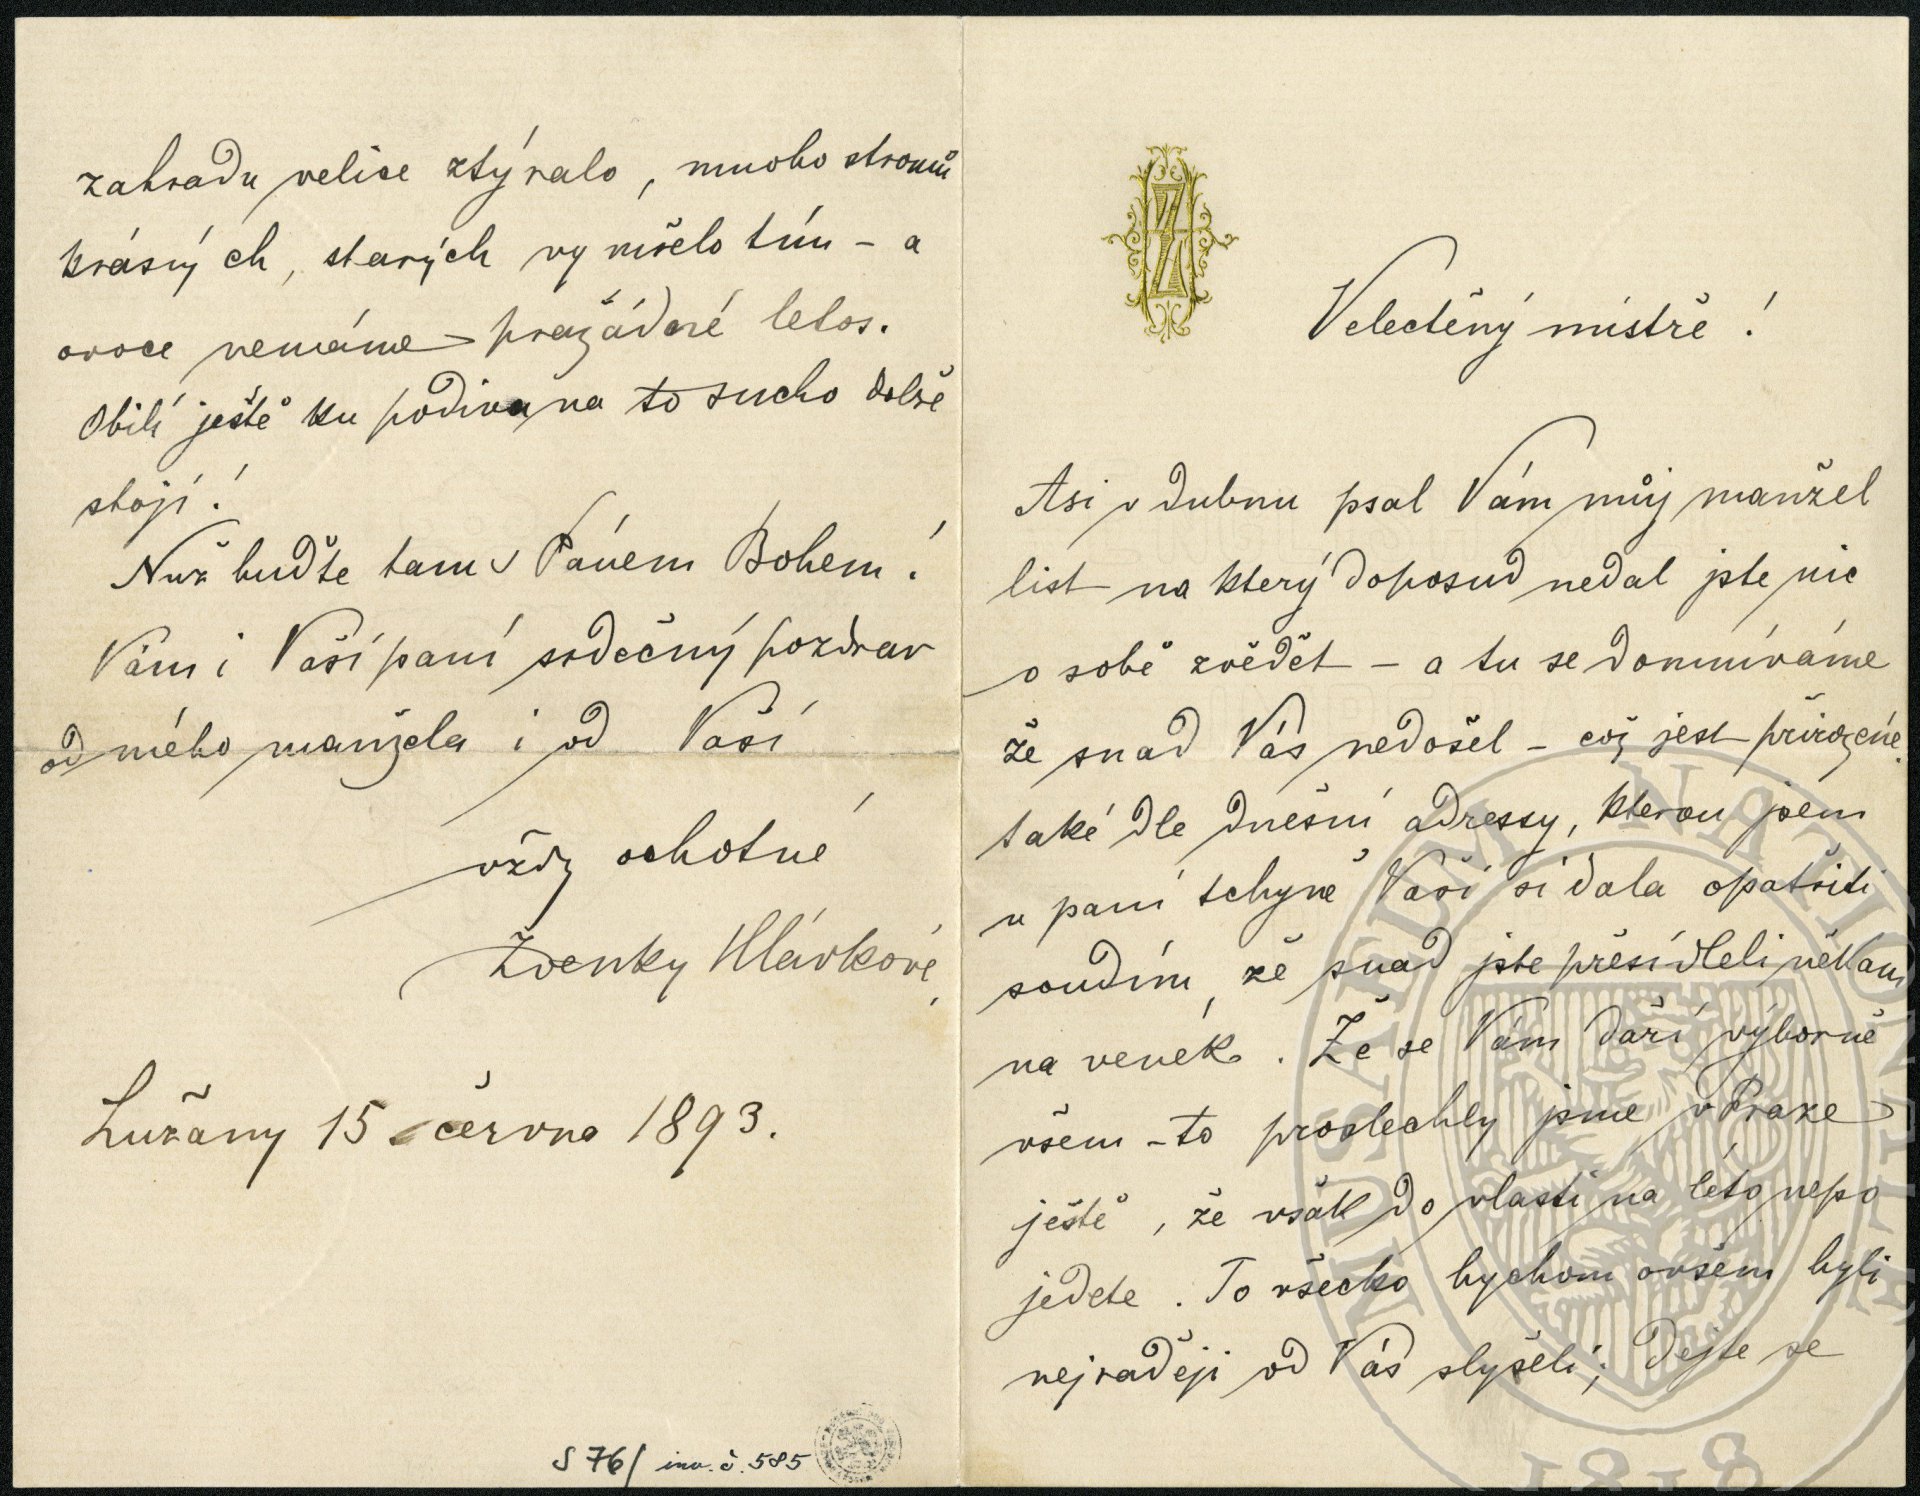 Velectěný mistře!
Asi v dubnu psal Vám můj manžel
list na který doposud nedal jste nic
o sobě zvědět – a tu se domníváme
že snad Vás nedošel – což jest přirozené.
také dle dnešní adressy, kterou jsem
u paní tchyně Vaší si dala opatřiti
soudím, že snad jste přesídleli někam
na venek. Že se Vám daří výborně
všem – to proslechly jsme v Praze
ještě, že však do vlasti na léto nepo
jedete. To všecko bychom ovšem byli
nejraději od Vás slyšeli; dejte se
zahradu velice ztýralo, mnoho stromů
krásných, starých vymřelo tím – a
ovoce nemáme pražádné letos.
Obilí ještě ku podivu na to sucho dobře
stojí!
Nuž buďte tam s Pánem Bohem!
Vám i Vaší paní srdečný pozdrav
od mého manžela i od Vaší
vždy ochotné
Zdenky Hlávkové
Lužany 15 června 1893.
S 76/ inv. č. 585
MUSAEUM NATIONALE
1818